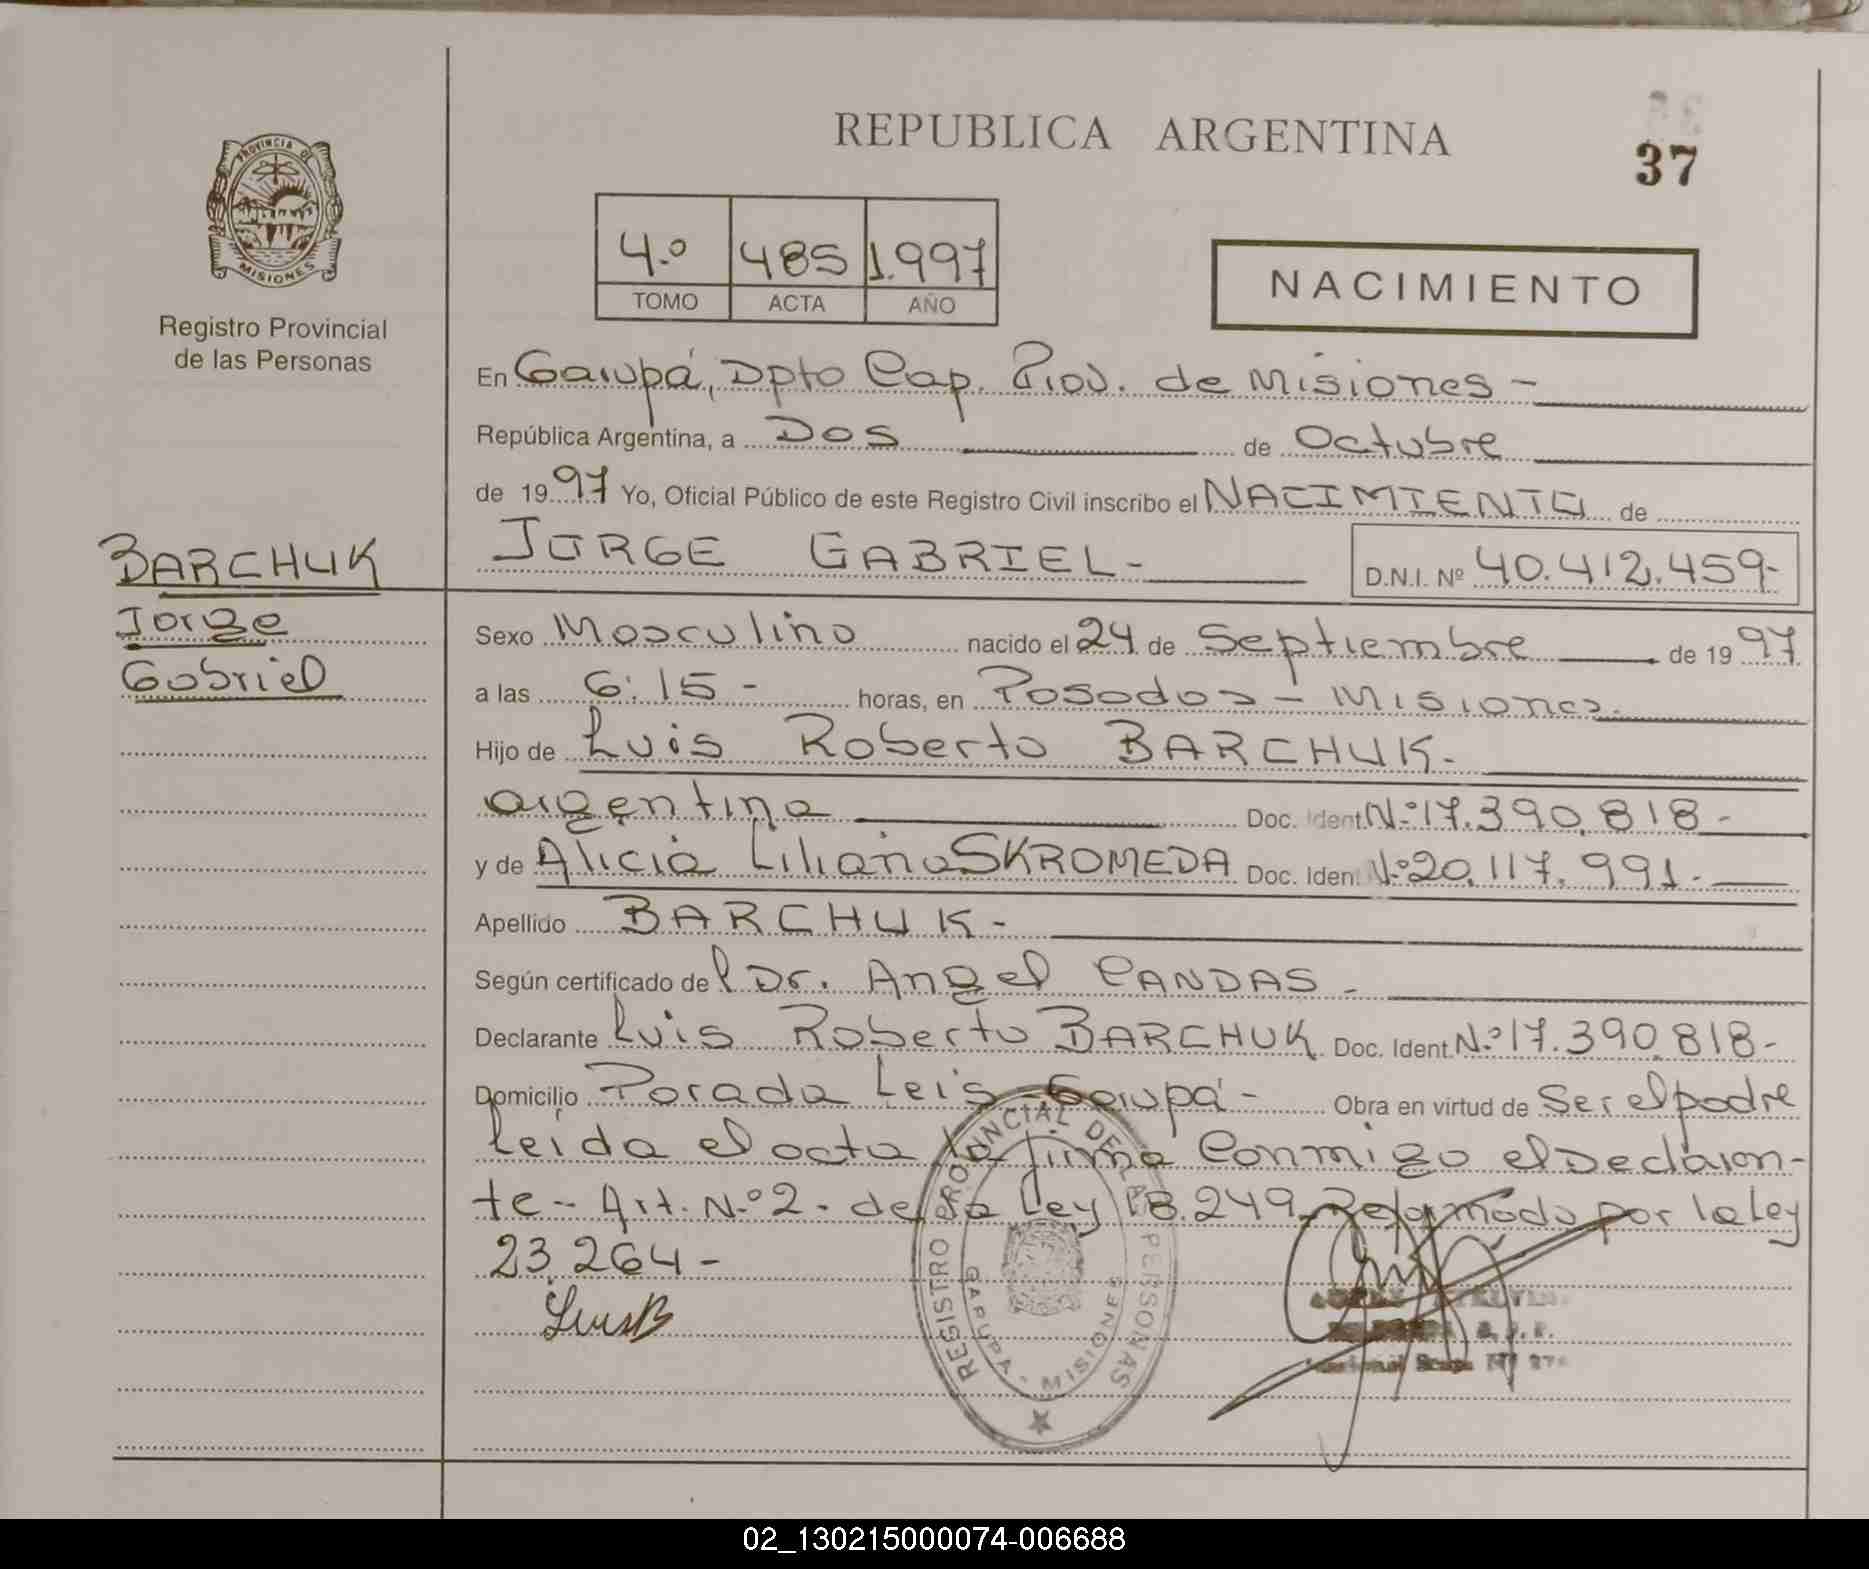 REPUBLICA ARGENTINA
37
PROVINCIA DE
MISIONES
Registro Provincial
de las Personas
4.º 485 1.997
TOMO ACTA AÑO
NACIMIENTO
En Garupá, Dpto Cap. Prov. de Misiones -
República Argentina, a Dos de Octubre
de 1997 Yo, Oficial Público de este Registro Civil inscribo el NACIMIENTO de
JORGE GABRIEL- D.N.I. Nº 40.412.459-
BARCHUK
Jorge
Gabriel
Sexo Masculino nacido el 24 de Septiembre de 1997
a las 6:15- horas, en Posadas - Misiones.
Hijo de Luis Roberto BARCHUK-
argentina Doc. Ident. N.º 17.390.818-
y de Alicia Liliana SKROMEDA Doc. Iden. N.º 20.117.991.
Apellido BARCHUK-
Según certificado del Dr. Angel CANDAS -
Declarante Luis Roberto BARCHUK Doc. Ident. N.º 17.390.818-
Domicilio Parada Leis - Garupá - Obra en virtud de Ser el padre
Leida el acta la firma Conmigo el Declaran-
te - Art. N.º 2 - de la Ley 18.249 Reformado por la Ley
23.264 -
LuisB
REGISTRO PROVINCIAL DE LAS PERSONAS
GARUPA - MISIONES
02_130215000074-006688